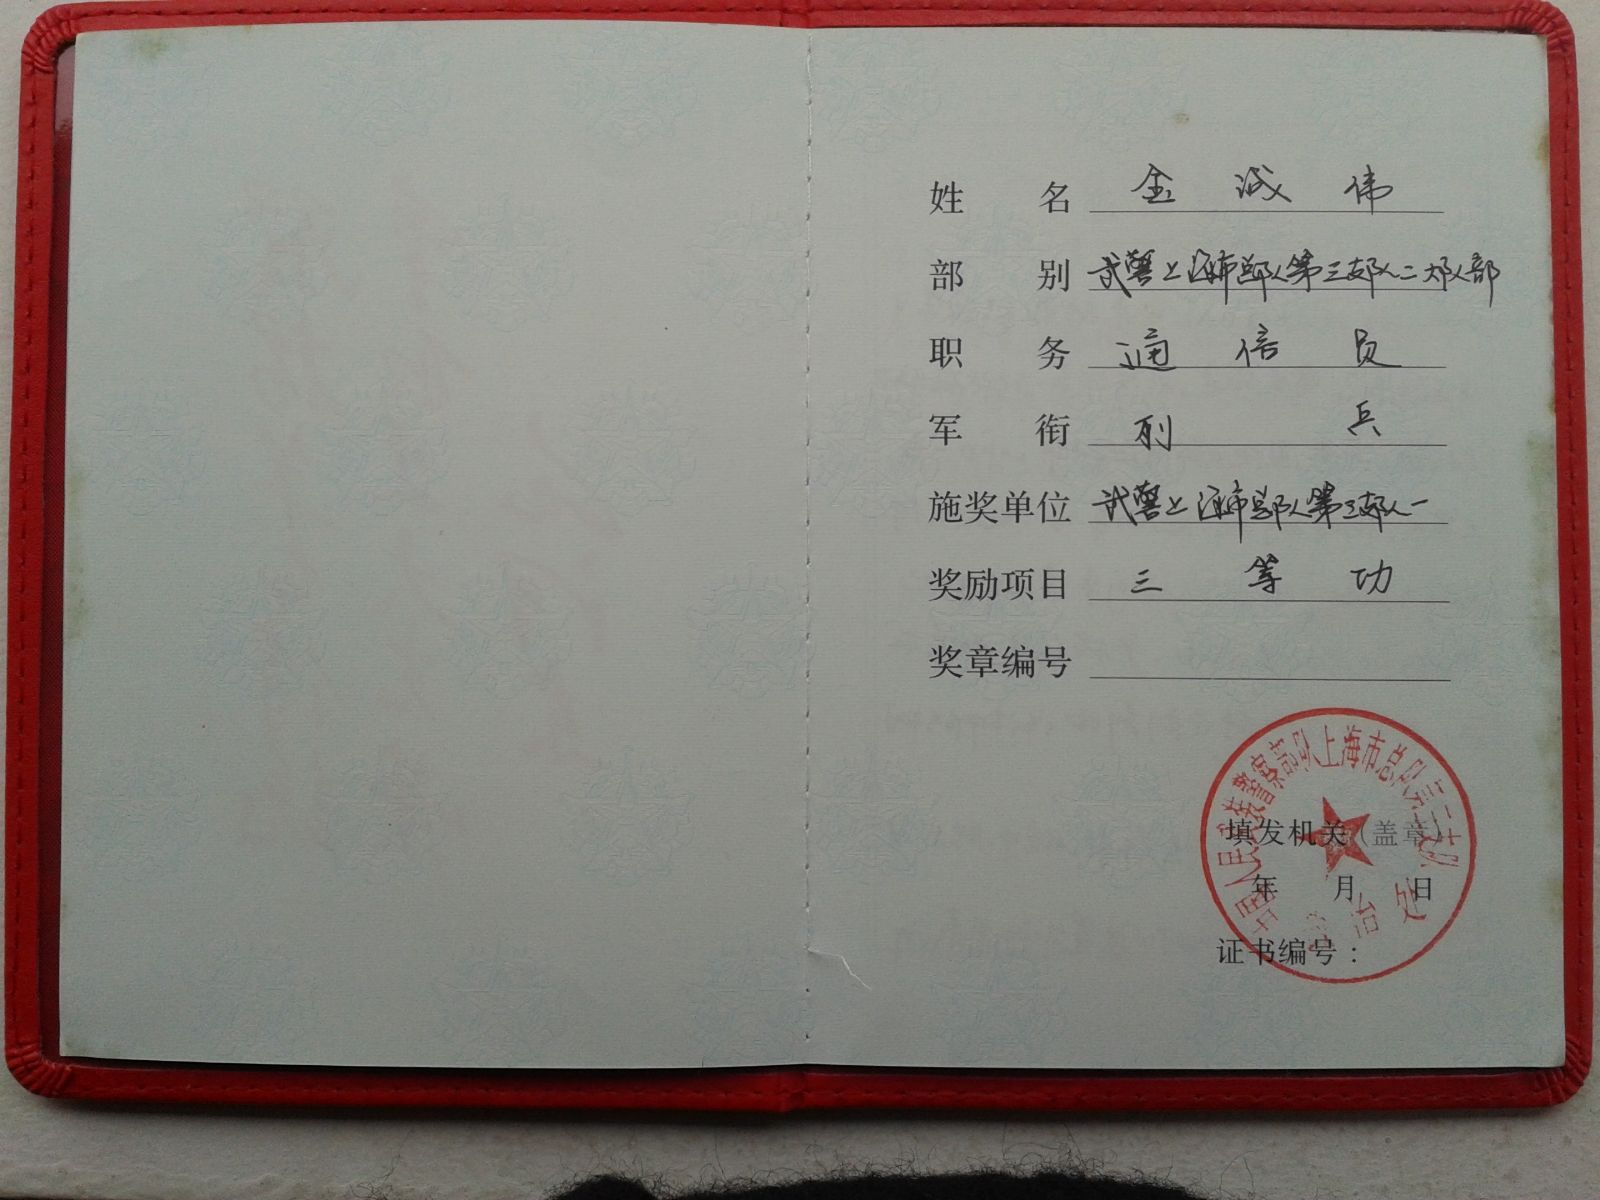 姓 名 金诚伟
部 别 武警上海市总队第三支队二大队部
职 务 通信员
军 衔 列兵
施奖单位 武警上海市总队第三支队
奖励项目 三等功
奖章编号
中国人民武装警察部队上海市总队第三支队
填发机关（盖章）
年 月 日
政治处
证书编号：